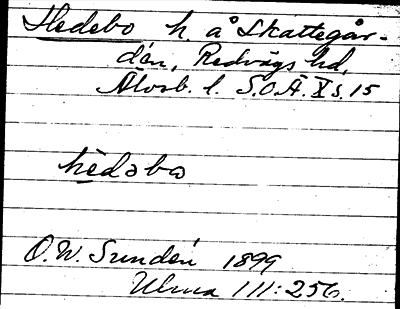 Hedebo h. å Skattegår-
dén, Redvägs hd,
Älvsb. l. S.O.Ä. X s. 15
hèdəbω
O.W. Sundén 1899
Ulma 111:256.